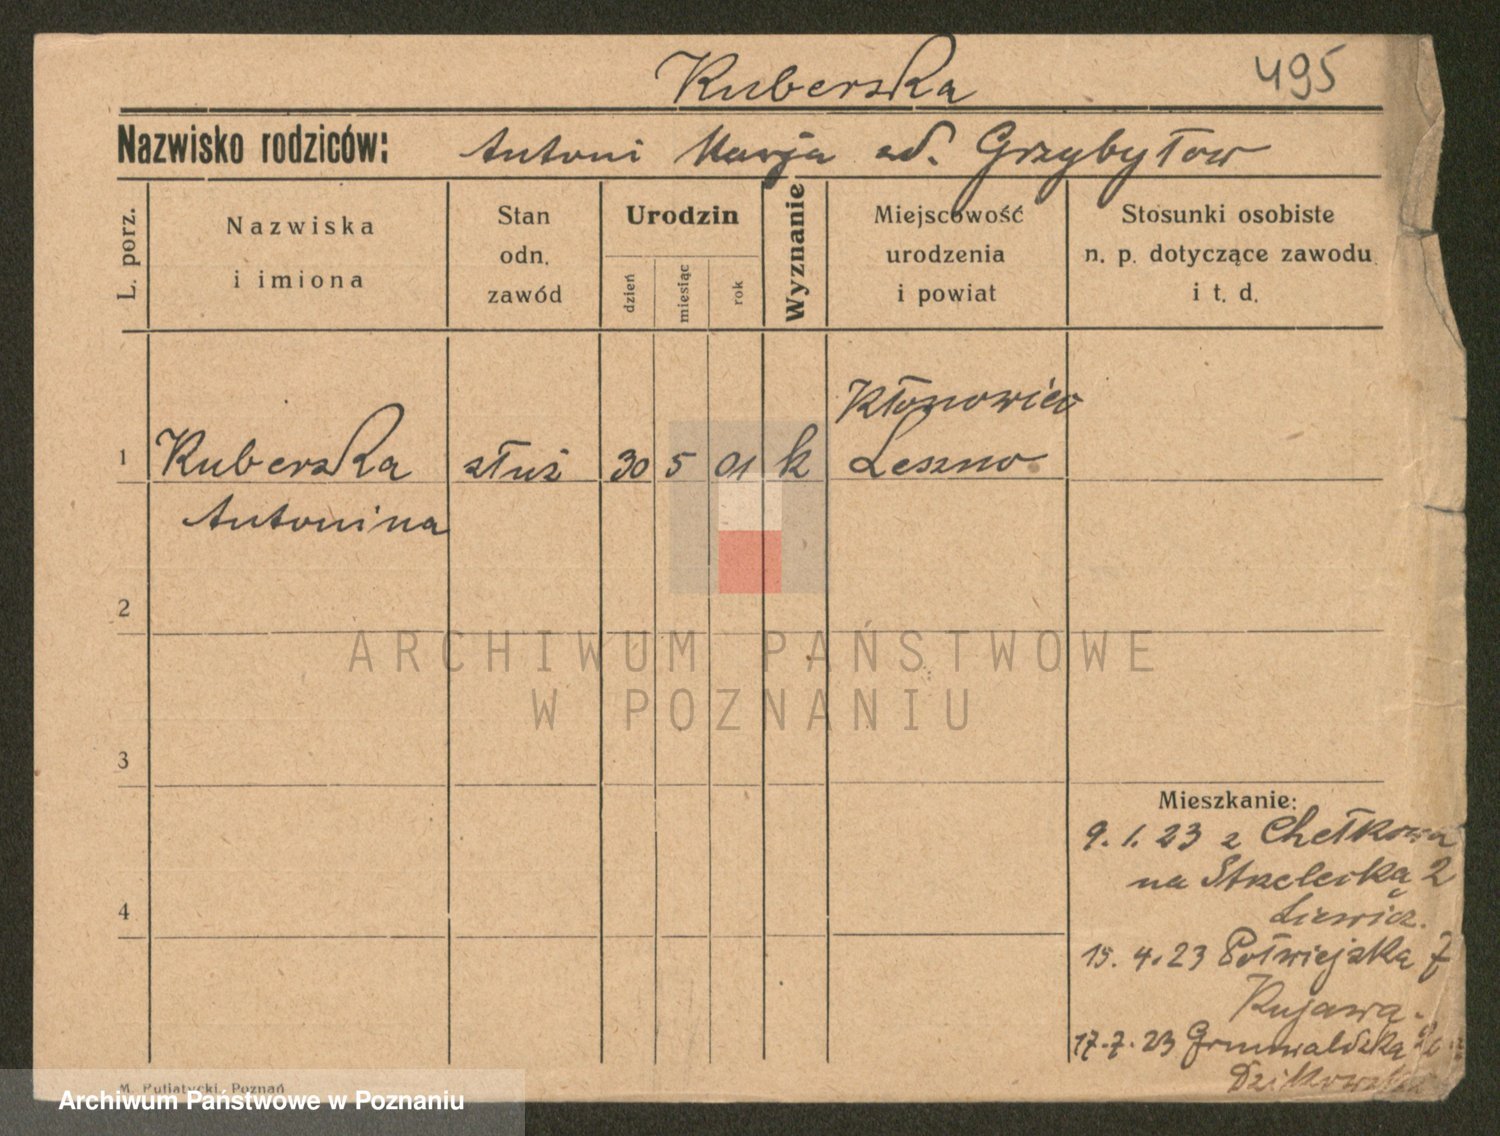 Kuberska
495
Nazwisko rodziców: Antoni Marja
L. porz.
Nazwiska
i imiona
Stan
odn.
zawód
Urodzin
dzień
miesiąc
rok
Wyznanie
Miejscowość
urodzenia
i powiat
Stosunki osobiste
n. p. dotyczące zawodu
i t. d.
Kłonowiec
1 Kuberska służ 30 5 01 k Leszno
Antonina
2
ARCHIWUM PAŃSTWOWE
W POZNANIU
3
Mieszkanie:
9.1.23 z Chełkowa
na Strzelecką 2
4
15.4.23 Półwiejska 7
Kujawa.
17.7.23 Grunwaldzka
M. Putiatycki, Poznań
Archiwum Państwowe w Poznaniu